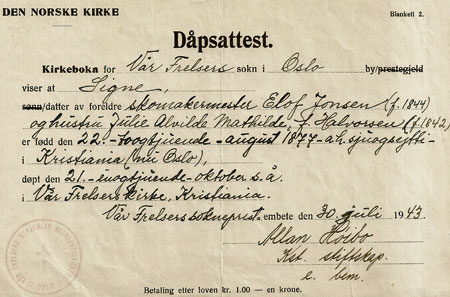 DEN NORSKE KIRKE
Blankett 2.
Dåpsattest.
Kirkeboka for Vår Frelsers sokn i Oslo by/prestegjeld
viser at Signe,
sønn/datter av foreldre skomakermester Elof Jonsen (f. 1844)
og hustru Julie Alvilde Mathilde, f. Halvorsen (f. 1842)
er født den 22.-toogtjuende - august 1877 - a.h. sjuogsytti -
i Kristiania (nu Oslo),
døpt den 21.- enogtjuende - oktober s.å.
i Vår Frelsers kirke, Kristiania.
Vår Frelsers sokneprest embete den 30. juli 1943
Allan Höibo
Kst. stiftskap.
e. bem.
Betaling etter loven kr. 1.00 — en krone.